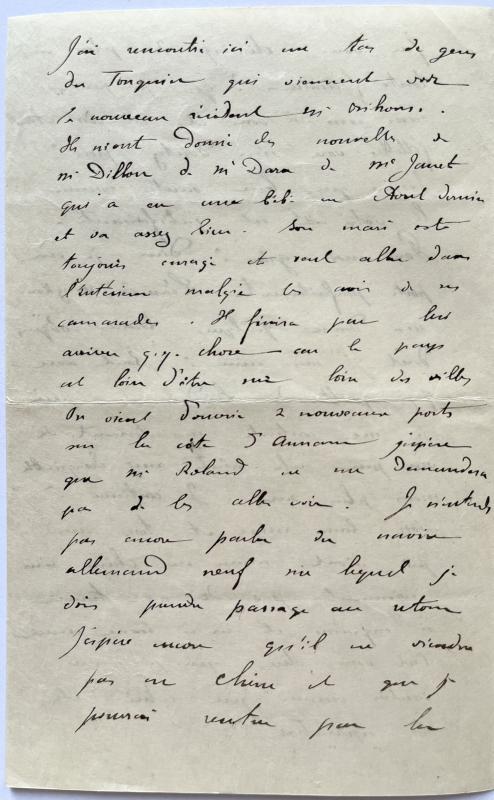 J'ai rencontré ici un tas de gens
du Tonquin qui viennent voir
le nouveau résident Mr Bihourd.
Ils m'ont donné des nouvelles de
Mr Dillon de Mr Dara de Me Janet
qui a eu une bébé en Avril dernier
et va assez bien. Son mari est
toujours enragé et veut aller dans
l'intérieur malgré les avis de ses
camarades. Il finira par lui
arriver q.q. chose car le pays
est loin d'être sûr loin des villes
On vient d'ouvrir 2 nouveaux ports
sur la côte d'Annam j'espère
que Mr Roland ne me demandera
pas de les aller voir. Je n'entends
pas encore parler du navire
allemand neuf sur lequel je
dois prendre passage au retour
J'espère encore qu'il ne viendra
pas en Chine et que je
pourrai rentrer par les